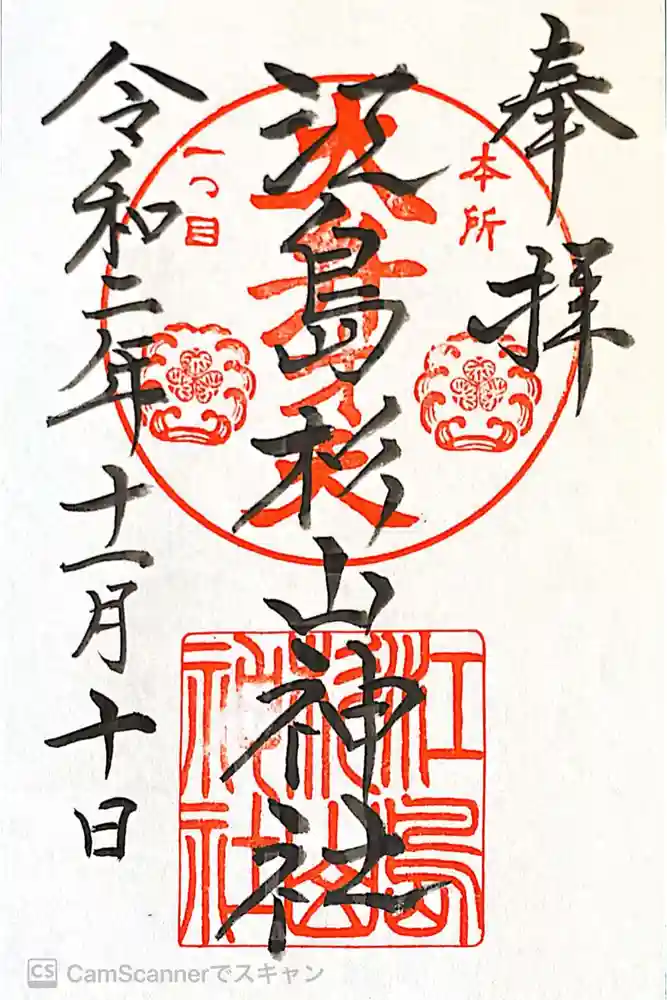 奉拝
本所
一つ目
江島杉山神社
江島
杉山
神社
令和二年十一月十日
CS CamScannerでスキャン